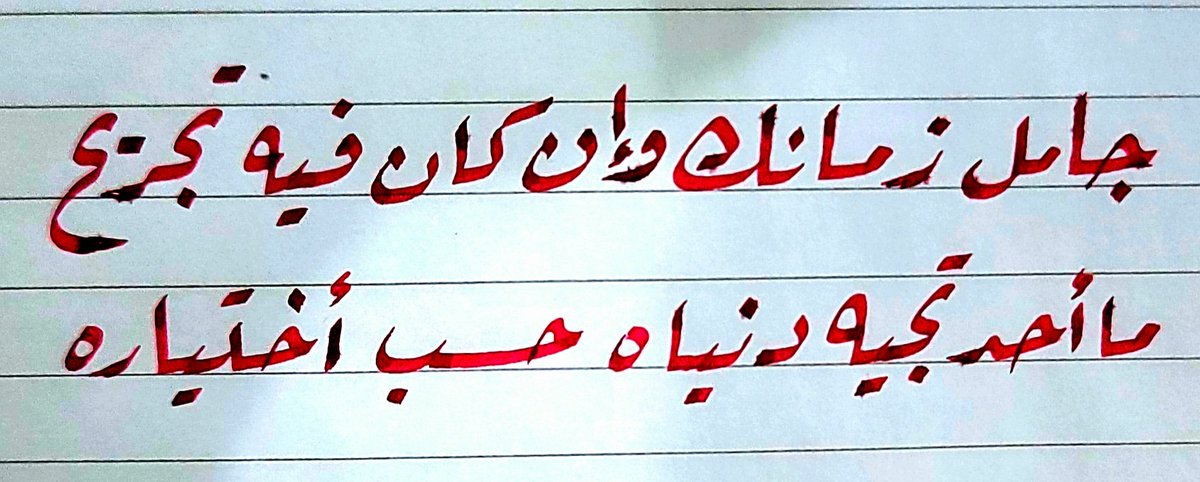 جامل زمانك وإن كان فيه تجريح
ما أحد تجيه دنياه حسب أختياره